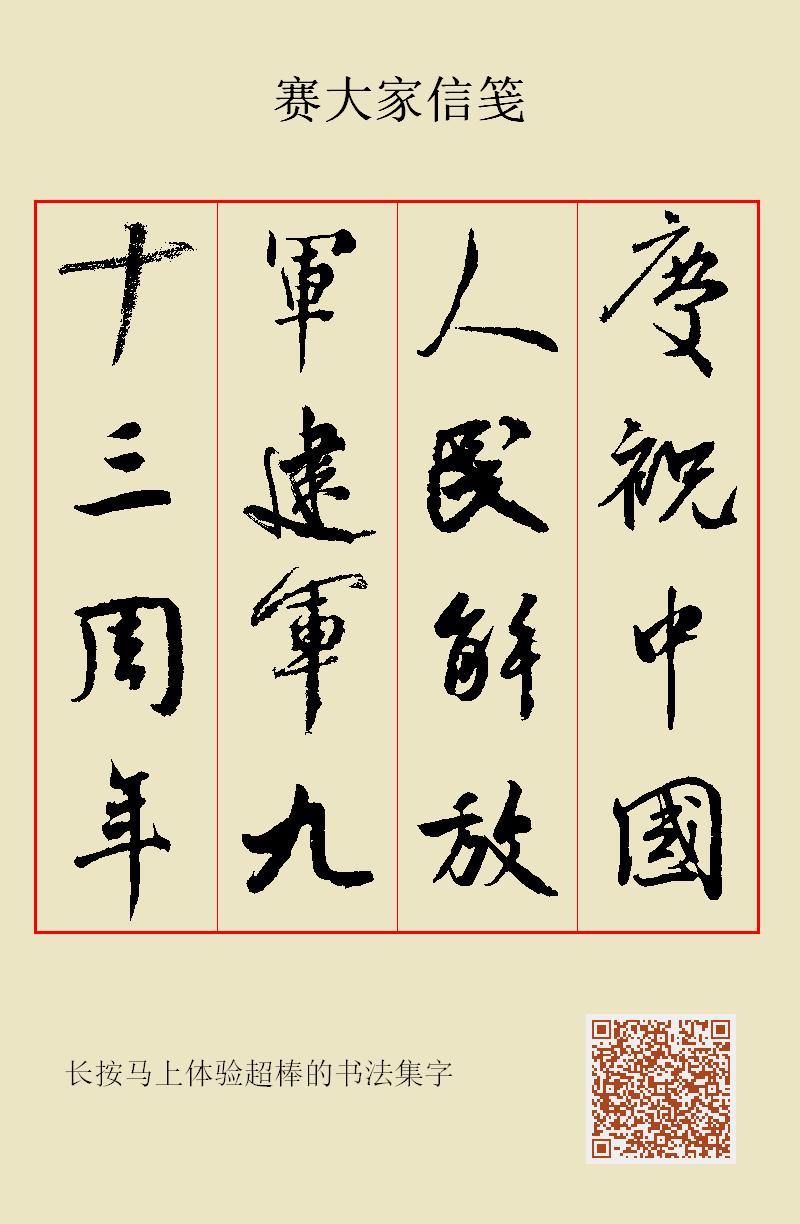 赛大家信笺
慶祝中國
人民解放
軍建軍九
十三周年
长按马上体验超棒的书法集字